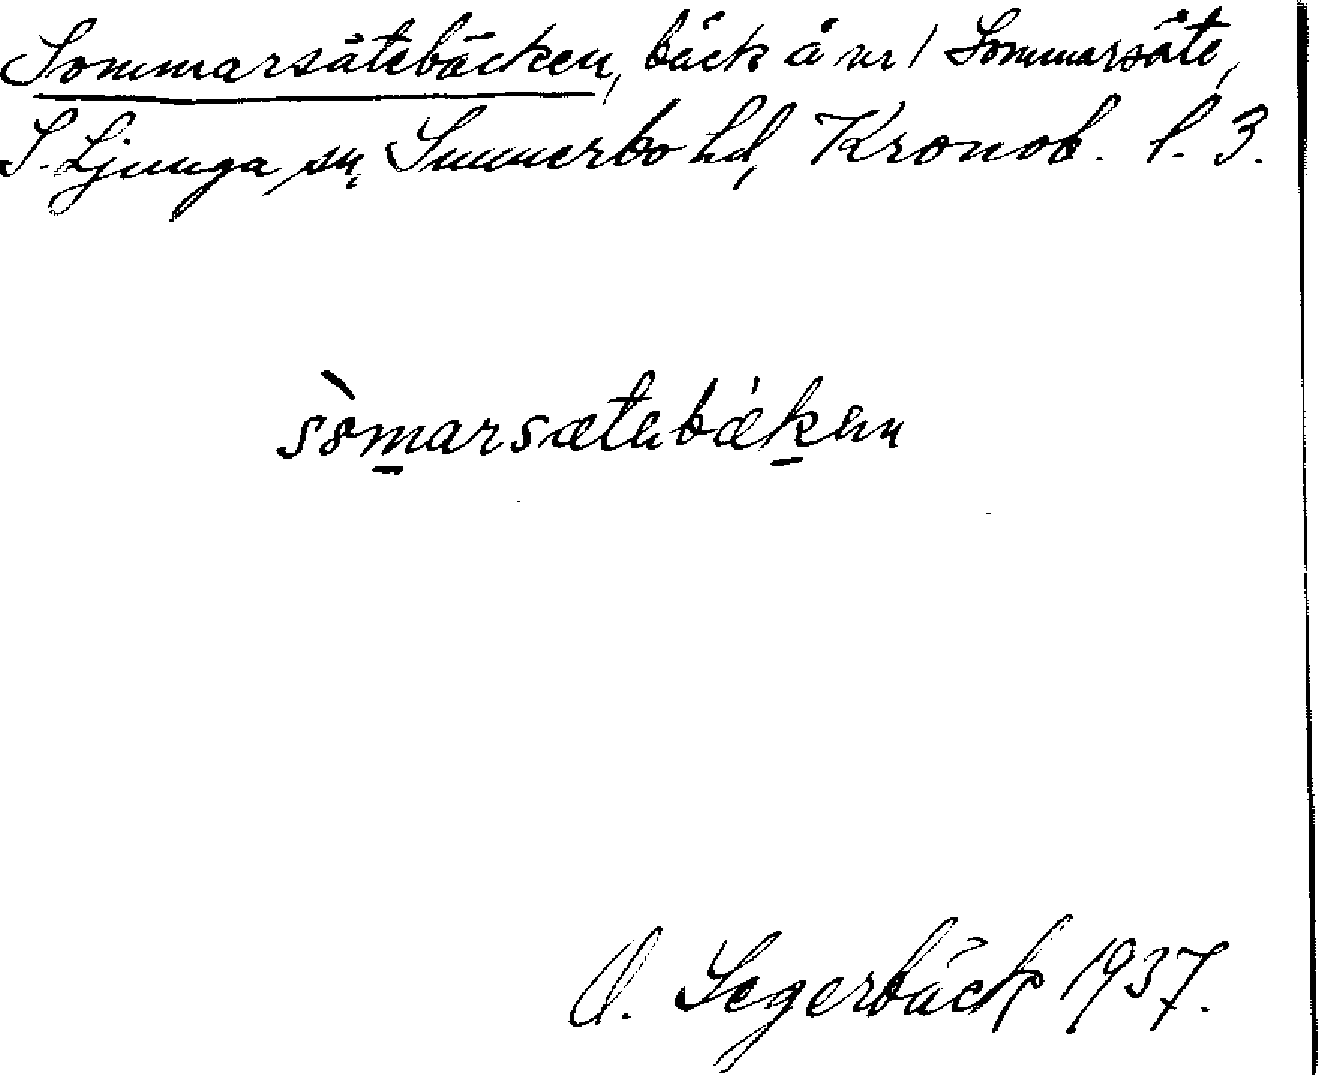 Sommarsätebäcken, bäck å nr 1 Sommarsäte,
S. Ljunga sn, Sunnerbo hd, Kronob. l. 3.
sòmarsætebæken
O. Segerbäck 1937.